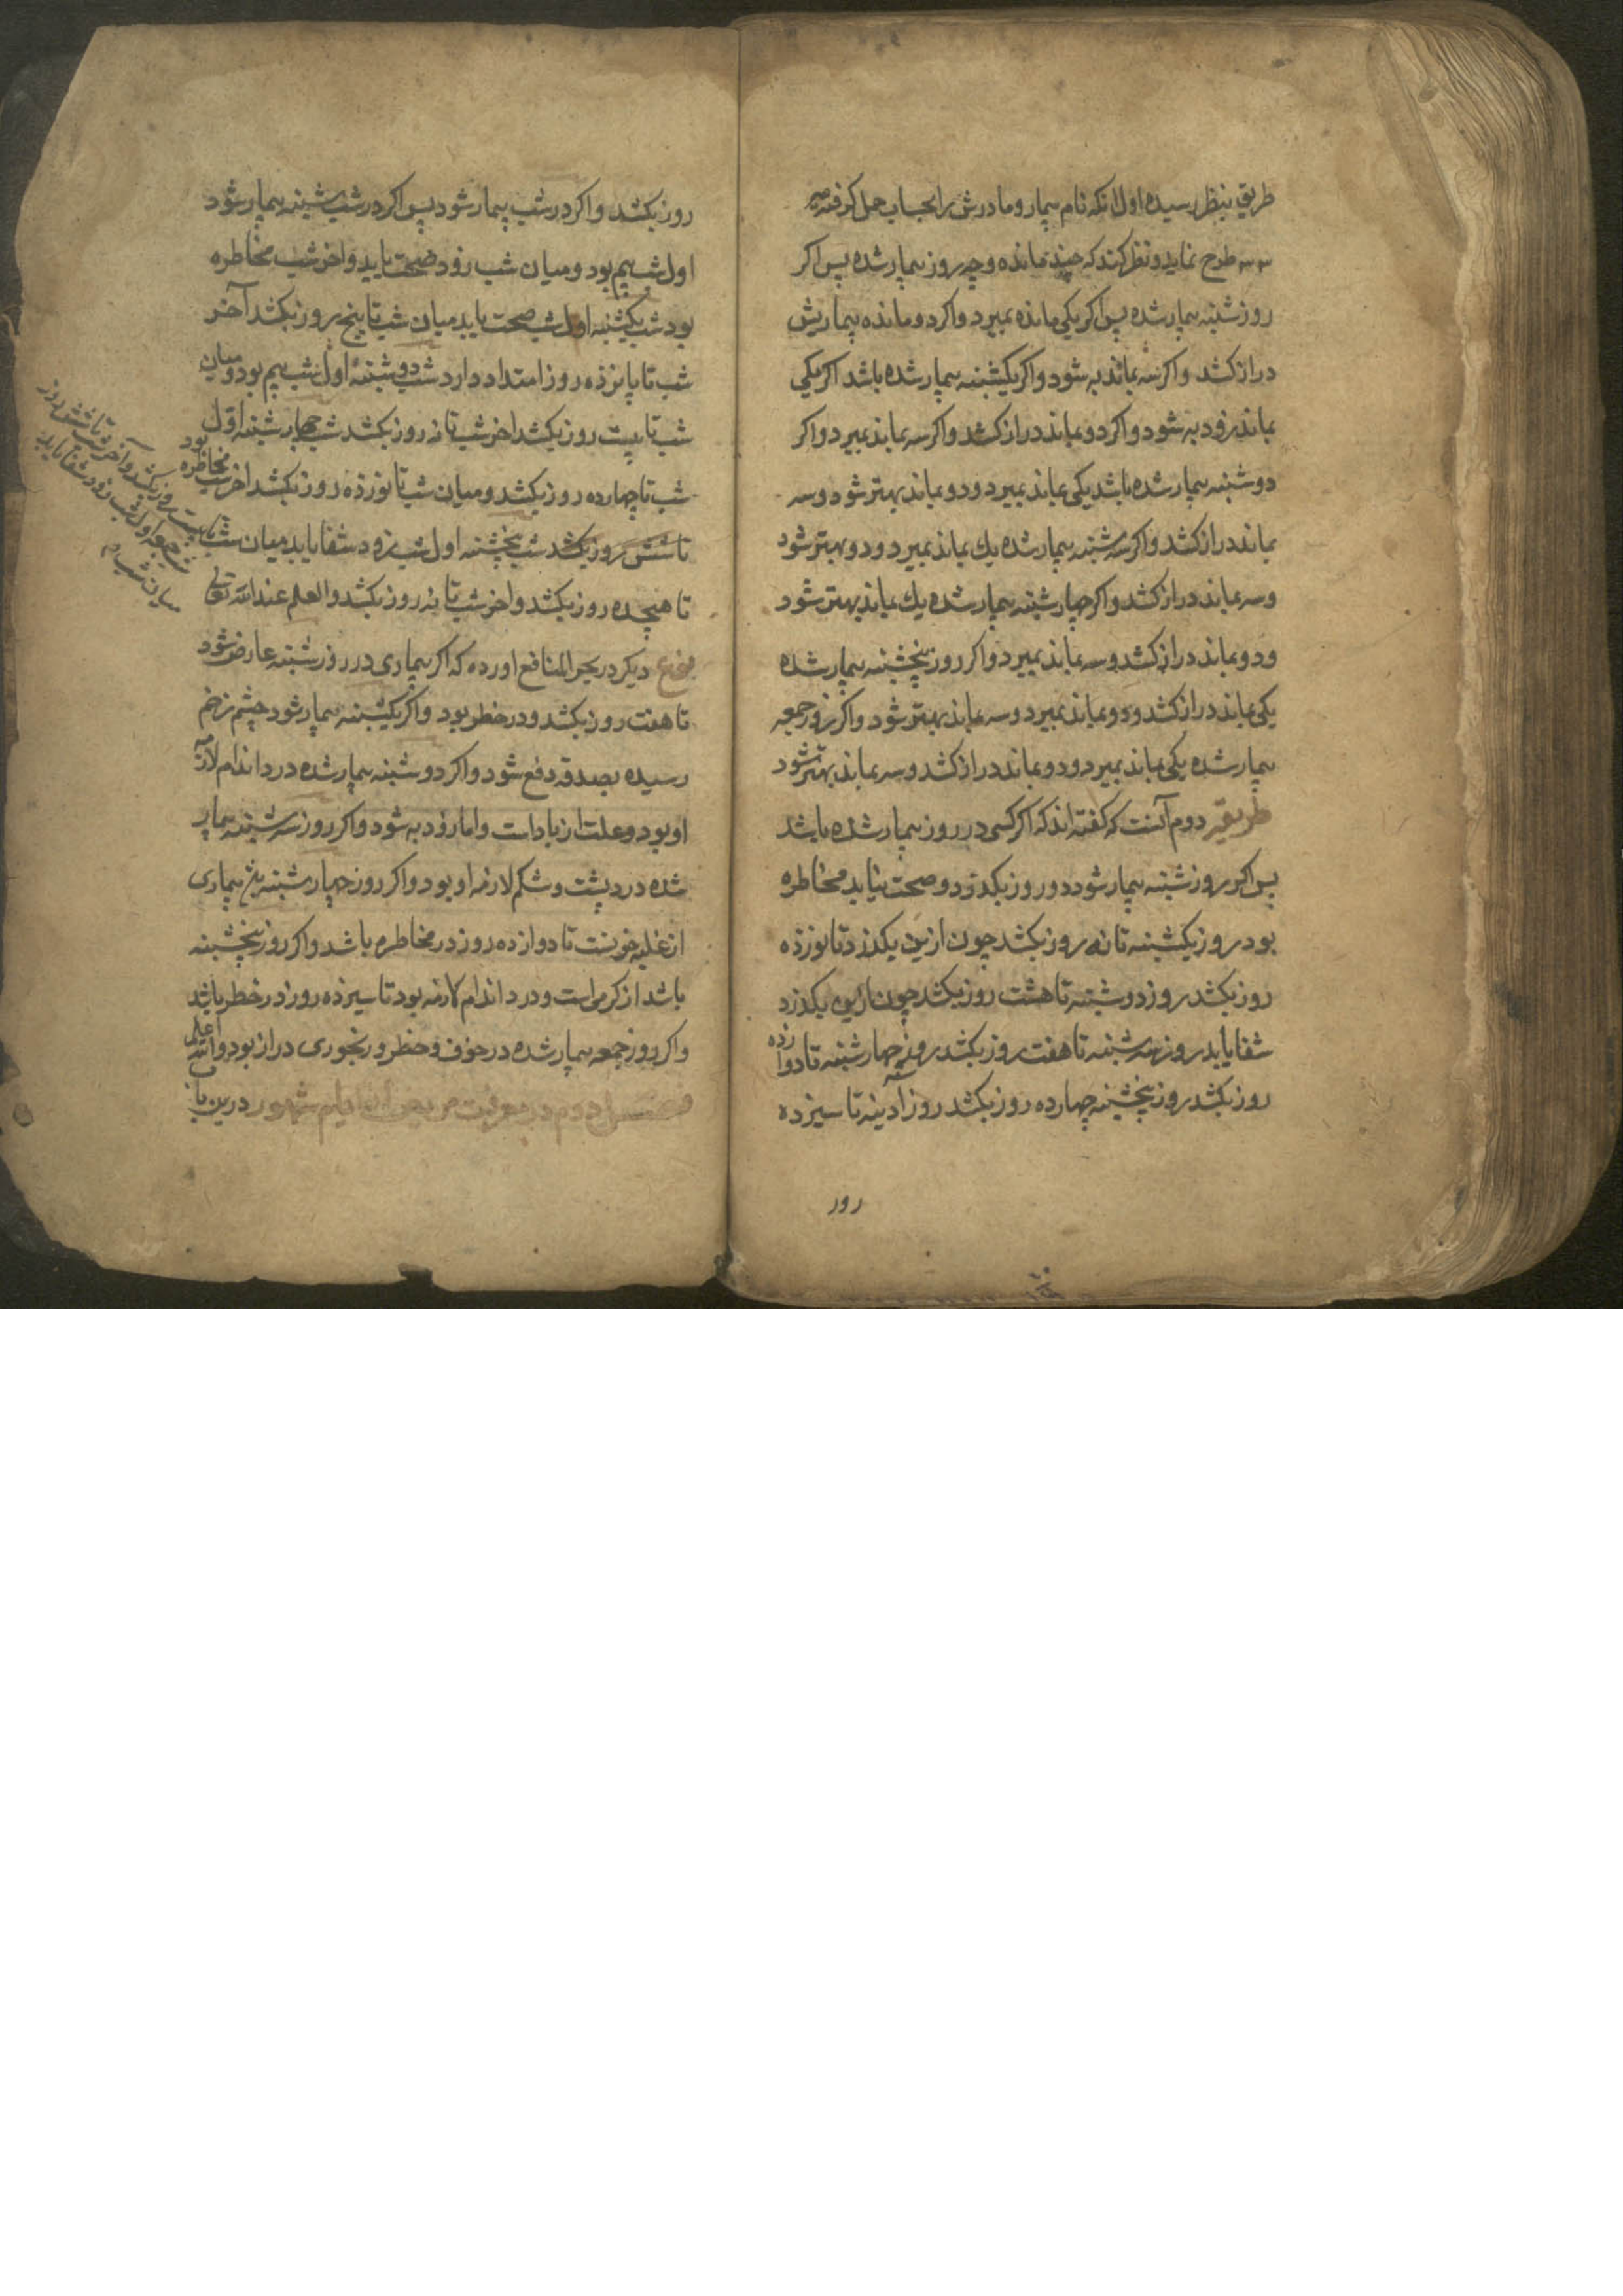 طریق بنظر رسیده اول انکه نام بیمار و مادرش را بحساب جمل کرفته
سه سه طرح نماید و نظر کند که چند مانده و چه روز بیمار شده پس اکر
روز شنبه بیمار شده پس اکر یکی مانده بمیرد و اکر دو مانده بیماریش
دراز کشد و اکر سه بماند به شود و اکر یکشنبه بیمار شده باشد اکر یکی
بماند زود به شود و اکر دو بماند دراز کشد و اکر سه بماند بمیرد و اکر
دوشنبه بیمار شده باشد یکی بماند بمیرد و دو بماند بهتر شود و سه
بماند دراز کشد و اکر سه شنبه بیمار شده یك بماند بمیرد و دو بهتر شود
و سه بماند دراز کشد و اکر چهارشنبه بیمار شده یك بماند بهتر شود
و دو بماند دراز کشد و سه بماند بمیرد و اکر روز پنجشنبه بیمار شده
یکی بماند دراز کشد و دو بماند بمیرد و سه بماند بهتر شود و اکر روز جمعه
بیمار شده یکی بماند بمیرد و دو بماند دراز کشد و سه بماند بهتر شود
طریقه دوم آنست که کفته اند که اکر کسی در روز بیمار شده باشد
پس اکر روز شنبه بیمار شود دو روز بکذرد و صحت نیابد مخاطره
بود روز یکشنبه تا نه روز بکشد چون ازین بکذرد تا نوزده
روز بکشد روز دوشنبه تا هشت روز بکشد چون ازین بکذرد
شفا یابد روز سه شنبه تا هفت روز بکشد روز چهارشنبه تا دوازده
روز بکشد روز پنجشنبه چهارده روز بکشد روز آدینه تا سیزده
روز
روز بکشد و اکر در شب بیمار شود پس اکر در شب شنبه بیمار شود
اول شب بیم بود و میان شب زود صحت یابد و اخر شب مخاطره
بود شب یکشنبه اول شب صحت یابد میان شب تا پنج روز بکشد آخر
شب تا پانزده روز امتداد دارد شب دوشنبه اول شب بیم بود و میان
شب تا بیست روز بکشد اخر شب تا نه روز بکشد شب چهارشنبه اول
شب تا چهارده روز بکشد و میان شب تا نوزده روز بکشد اخر شب مخاطره بود
تا شش روز بکشد شب پنجشنبه اول شب زود شفا یابد میان شب
تا هیجده روز بکشد و اخر شب تا نه روز بکشد والعلم عند الله تعالی
نوع دیکر در بحر المنافع اورده که اکر بیماری در روز شنبه عارض شود
تا هفت روز بکشد و در خطر بود و اکر یکشنبه بیمار شود چشم زخم
رسیده بصدقه دفع شود و اکر دوشنبه بیمار شده درد اندام لازمه
او بود و علت از باد است و اما زود به شود و اکر روز سه شنبه بیمار
شده درد پشت و شکم لازمه او بود و اکر روز چهارشنبه بیماری
از غلبه خونست تا دوازده روز در مخاطره باشد و اکر روز پنجشنبه
باشد از کرمی است و درد اندام لازمه بود تا سیزده روز در خطر باشد
و اکر روز جمعه بیمار شده در خوف و خطر و رنجوری دراز بود والله اعلم
فصل دوم در معرفت مریض از ایام شهور درین باب
بیست روز بکشد و آخر شب تا شش روز
شب جمعه اول شب زود شفا یابد
میان شب